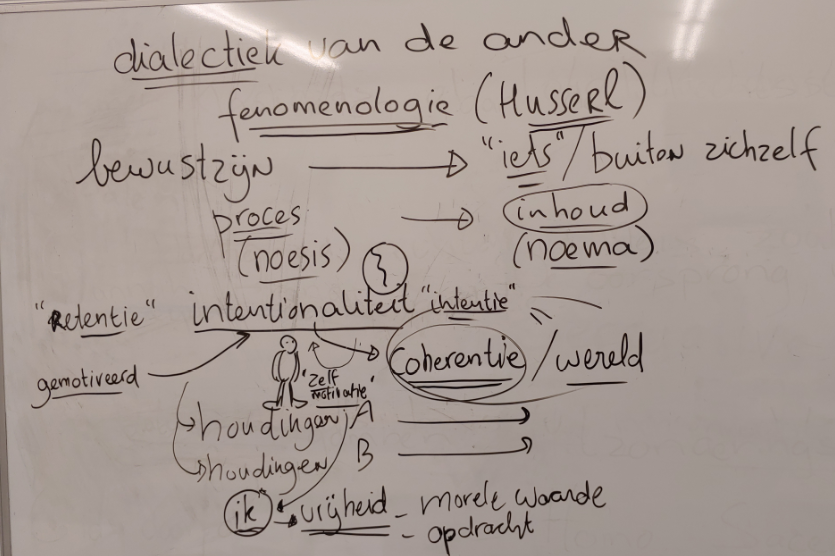 dialectiek van de ander
fenomenologie (Husserl)
bewustzijn → "iets" / buiten zichzelf
proces → inhoud
(noesis) (noema)
"Retentie" intentionaliteit "intentie"
gemotiveerd "zelf motivatie" coherentie / wereld
houdingen A →
houdingen B →
"ik" → vrijheid - morele waarde
- opdracht